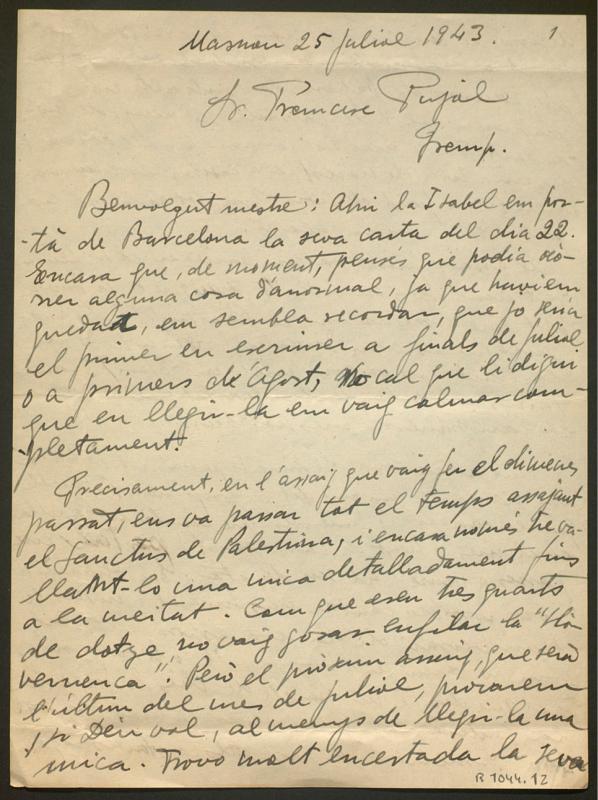 Masnou 25 juliol 1943. 1
Sr. Francesc Pujol
Tremp.
Benvolgut mestre: Ahir la Isabel em por-
-tà de Barcelona la seva carta del dia 22.
Encara que, de moment, pensés que podia ocò-
rrer alguna cosa d'anormal, ja que havíem
quedat, em sembla recordar, que jo seria
el primer en escriurer a finals de juliol
o a primers de Agost, No cal que li digui
que en llegir-la em vaig calmar com-
pletament.
Precisament, en l'assaig que vaig fer el dimecres
passat, ens va passar tot el temps assajant
el Sanctus de Palestrina, i encara només treva-
llant-lo una mica detalladament fins
a la meitat. Com que eren tres quarts
de dotze no vaig gosar enfilar la
vernenca". Però el pròxim assaig, que serà
l'últim del mes de juliol, procurarem
si Déu vol, al menys de llegir-la una
mica. Trovo molt encertada la seva
R 1044.12